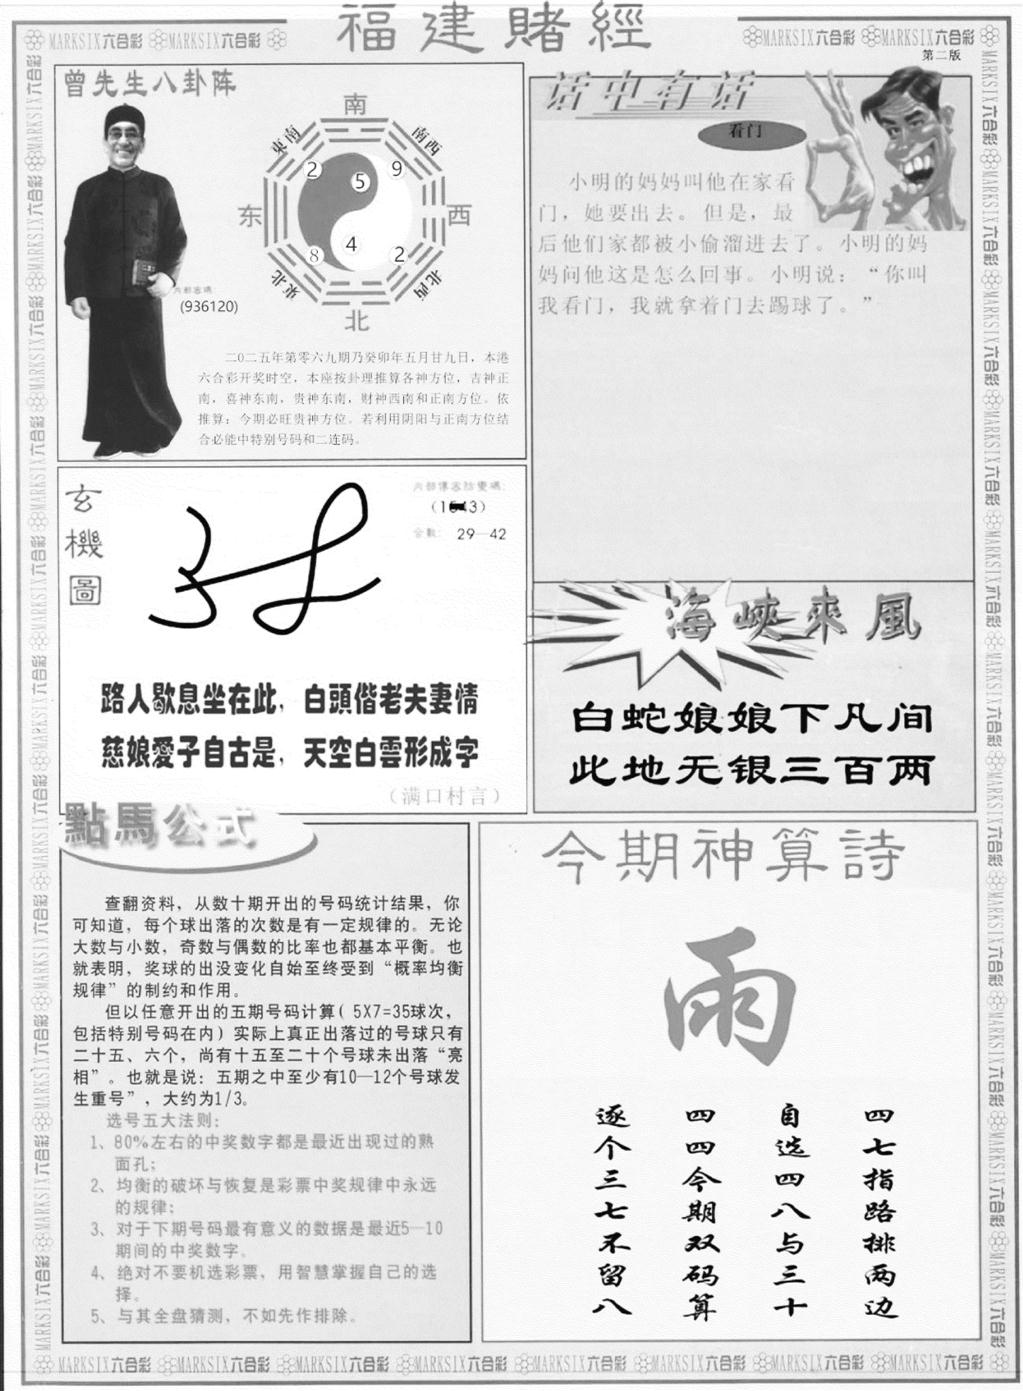 福建賭經
MARKSIX六合彩 MARKSIX六合彩
MARKSIX六合彩 MARKSIX六合彩
第二版
曾先生八卦阵
南
東南
南西
2
5
9
东
西
8
4
2
東北
北西
北
内部密碼:
(936120)
二O二五年第零六九期乃癸卯年五月廿九日，本港
六合彩开奖时空，本座按卦理推算各神方位，吉神正
南，喜神东南，贵神东南，财神西南和正南方位。依
推算：今期必旺贵神方位。若利用阴阳与正南方位结
合必能中特别号码和二连码。
话中有话
看门
小明的妈妈叫他在家看
门，她要出去。但是，最
后他们家都被小偷溜进去了。小明的妈
妈问他这是怎么回事。小明说：“你叫
我看门，我就拿着门去踢球了。”
玄機圖
内部傳密防變碼:
合數: 29—42
路人歇息坐在此，白頭偕老夫妻情
慈娘愛子自古是，天空白雲形成字
（满口村言）
海峽來風
白蛇娘娘下凡间
此地无银三百两
點馬公式
查翻资料，从数十期开出的号码统计结果，你
可知道，每个球出落的次数是有一定规律的。无论
大数与小数，奇数与偶数的比率也都基本平衡。也
就表明，奖球的出没变化自始至终受到“概率均衡
规律”的制约和作用。
但以任意开出的五期号码计算( 5X7=35球次，
包括特别号码在内) 实际上真正出落过的号球只有
二十五、六个，尚有十五至二十个号球未出落“亮
相”。也就是说：五期之中至少有10—12个号球发
生重号”，大约为1/3。
选号五大法则:
1、80%左右的中奖数字都是最近出现过的熟
面孔；
2、均衡的破坏与恢复是彩票中奖规律中永远
的规律；
3、对于下期号码最有意义的数据是最近5—10
期间的中奖数字。
4、绝对不要机选彩票，用智慧掌握自己的选
择。
5、与其全盘猜测，不如先作排除。
今期神算詩
雨
四七指路排两边
自选四八与三十
四四今期双码算
逐个三七不留八